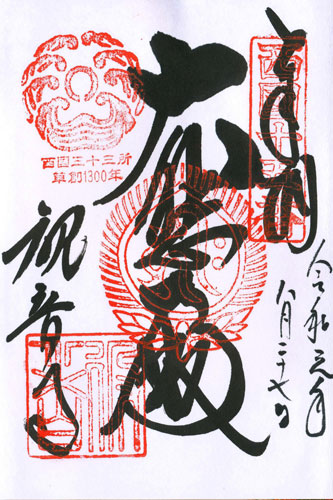 奉拝
令和元年
八月二十七日
大悲殿
西国三十三所
草創1300年
観音寺